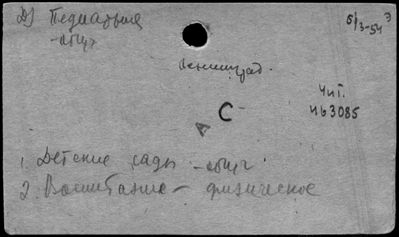 Д) Педиатрия
- общ.
б/3-54 э
Ленинград.
Чит.
С
Иь3085
А
1. Детские сады - общ.
2. Воспитание - физическое